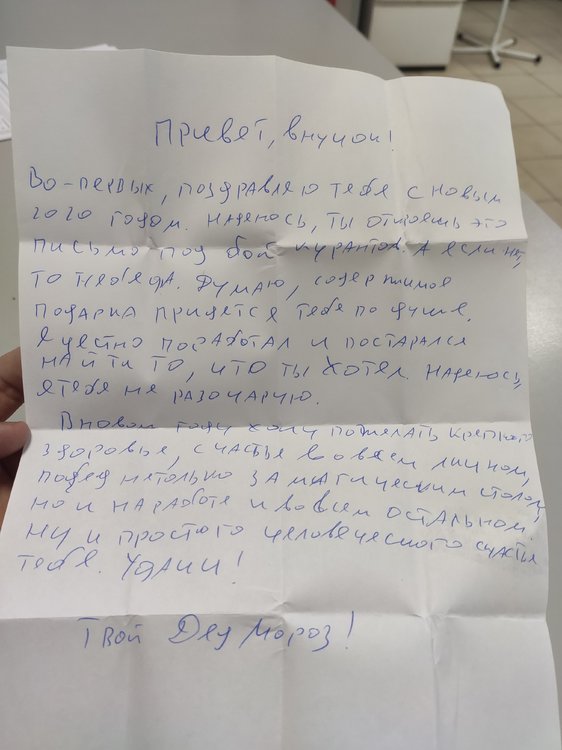 Привет, внучок!
Во-первых, поздравляю тебя с новым
2020 годом. Надеюсь, ты откроешь это
письмо под бой курантов. А если нет,
то не беда. Думаю, содержимое
подарка придется тебе по душе.
Я честно поработал и постарался
найти то, что ты хотел. Надеюсь,
я тебя не разочарую.
В новом году хочу пожелать крепкого
здоровья, счастья во всем личном,
побед не только за магическим столом,
но и на работе и во всем остальном.
Ну и простого человеческого счастья
тебе. Удачи!
Твой Дед Мороз!